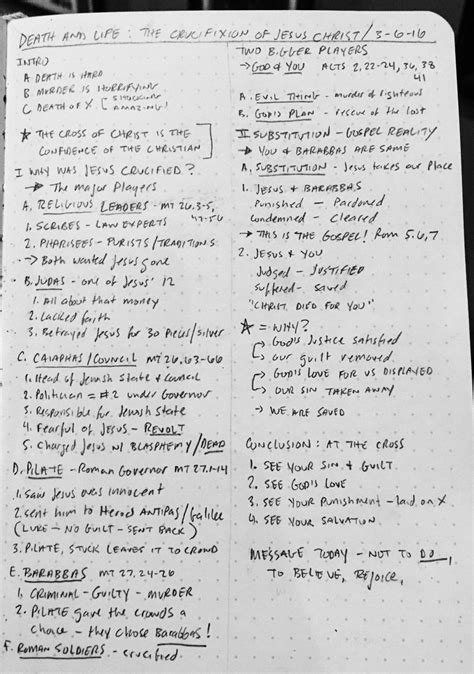 DEATH AND LIFE: THE CRUCIFIXION OF JESUS CHRIST / 3-6-16
INTRO
A DEATH IS HARD
B MURDER IS HORRIFYING
C DEATH OF X [ SHOCKING
AMAZING!
★ THE CROSS OF CHRIST IS THE
CONFIDENCE OF THE CHRISTIAN
I WHY WAS JESUS CRUCIFIED?
→ The major Players
A. RELIGIOUS LEADERS - MT 26.3-5,
47-56
1. SCRIBES - LAW EXPERTS
2. PHARISEES - PURISTS/TRADITIONS
→ Both wanted Jesus gone
B. JUDAS - one of Jesus' 12
1. All about that money
2. Lacked faith
3. Betrayed Jesus for 30 pieces/silver
C. CAIAPHAS/COUNCIL MT 26.63-66
1. Head of Jewish State & Council
2. Politician = #2 under Governor
3. Responsible for Jewish State
4. Fearful of Jesus - REVOLT
5. Charged Jesus w/ BLASPHEMY/DEAD
D. PILATE - Roman Governor MT 27.1-14
1. Saw Jesus was innocent
2. Sent him to Herod ANTIPAS/Galilee
(LUKE - NO GUILT - SENT BACK)
3. PILATE, STUCK LEAVES IT TO CROWD
E. BARABBAS MT 27.24-26
1. CRIMINAL - GUILTY - MURDER
2. PILATE gave the crowds a
choice - they chose Barabbas!
F. ROMAN SOLDIERS - crucified
TWO BIGGER PLAYERS
→ GOD & YOU ACTS 2, 22-24, 36, 38
41
A. EVIL THING - murder of righteous
B. GOD'S PLAN - rescue of the lost
II SUBSTITUTION - GOSPEL REALITY
→ YOU & BARABBAS ARE SAME
A. SUBSTITUTION - Jesus takes our Place
1. JESUS & BARABBAS
Punished - Pardoned
Condemned - Cleared
→ THIS IS THE GOSPEL! Rom 5.6,7
2. JESUS & YOU
Judged - JUSTIFIED
suffered - saved
"CHRIST DIED FOR YOU"
★ = WHY?
GOD'S JUSTICE SATISFIED
our guilt removed
GOD'S LOVE FOR US DISPLAYED
OUR SIN TAKEN AWAY
→ WE ARE SAVED
CONCLUSION: AT THE CROSS
1. SEE YOUR SIN & GUILT
2. SEE GOD'S LOVE
3. SEE YOUR PUNISHMENT - laid on X
4. SEE YOUR SALVATION
MESSAGE TODAY - NOT TO DO,
TO BELIEVE, REJOICE,